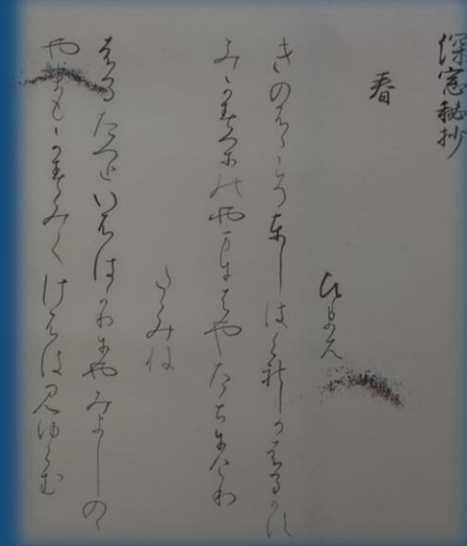 深窓秘抄
春
ひとまろ
きのふこそ東しはくれしかはるかす
みかすかのやまにはやたちにけり
たゝみね
はるたつといふはかりにやみよしのゝ
やまもかすみてけさは見ゆらむ